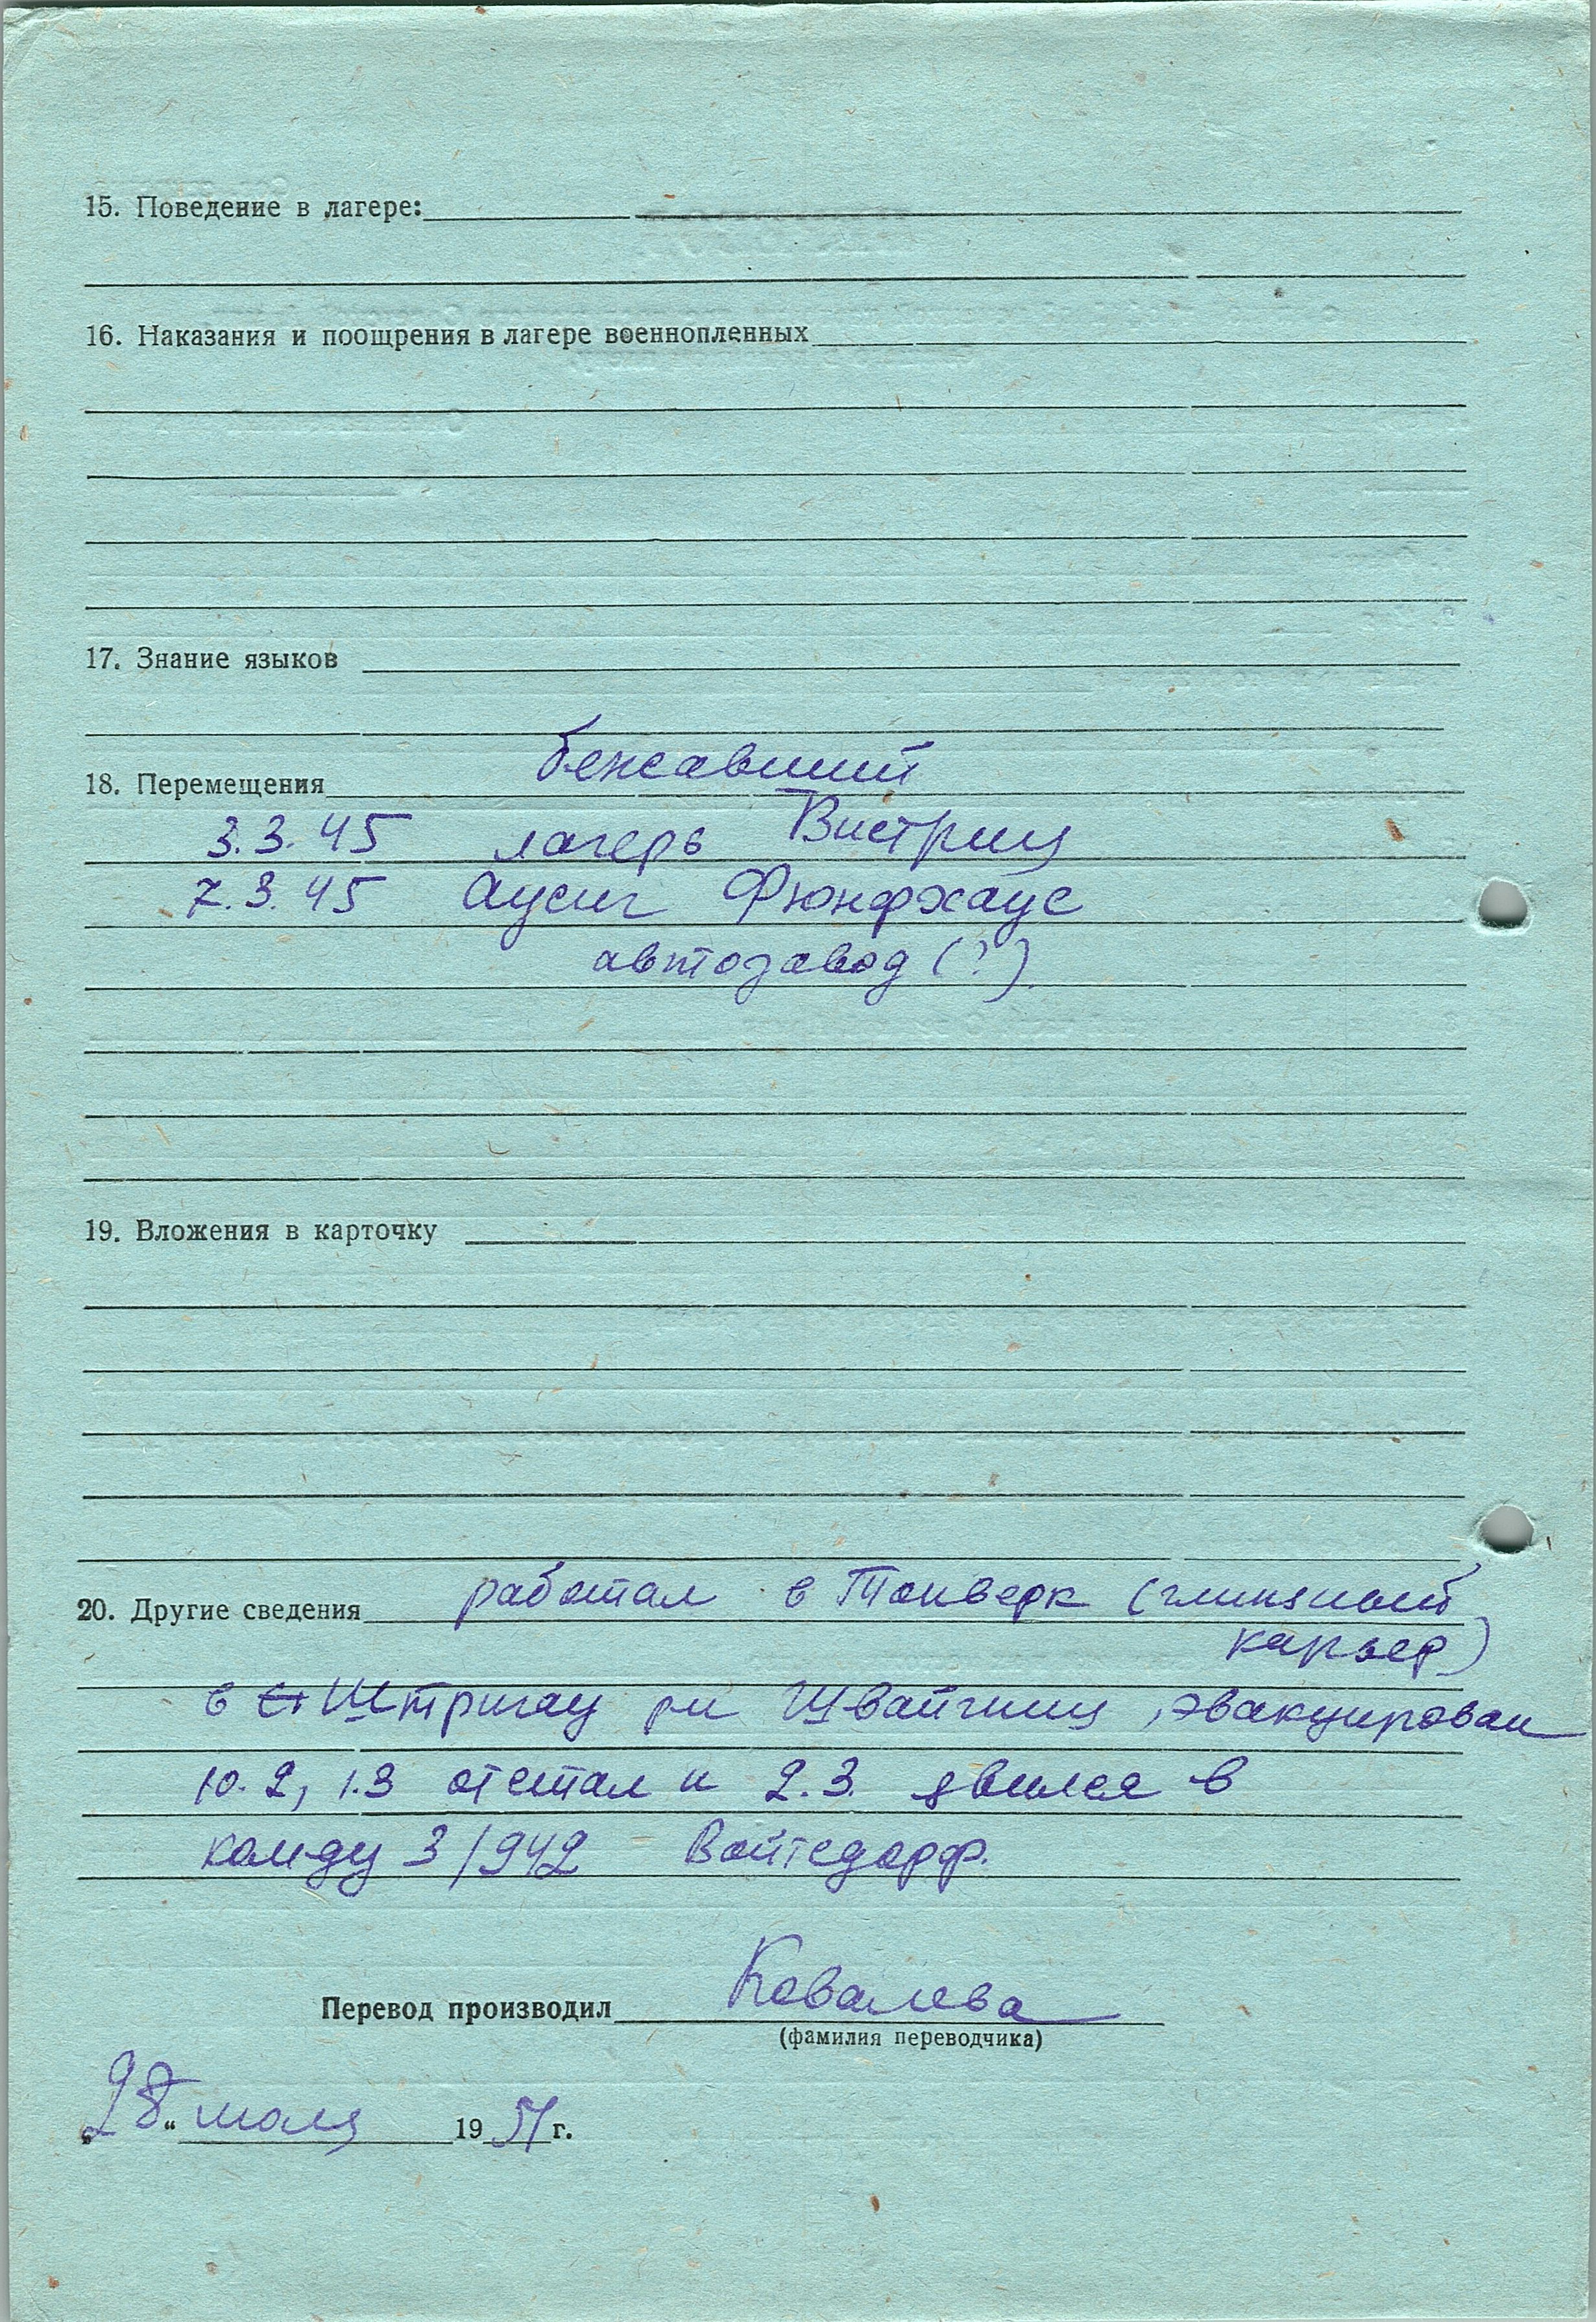 15. Поведение в лагере:
16. Наказания и поощрения в лагере военнопленных
17. Знание языков
бежавший
18. Перемещения
3.3.45 лагерь Вистриц
7.3.45 Аусиг Фюнфхаус
автозавод (?)
19. Вложения в карточку
20. Другие сведения работал в Тонверк (глиняный
карьер)
в Штригау Швайгниц, эвакуирован
10.2, 1.3 отстал и 2.3. явился в
команду 3/942 Войтсдорф.
Перевод производил Ковалева
(фамилия переводчика)
„28“ июля 1951 г.